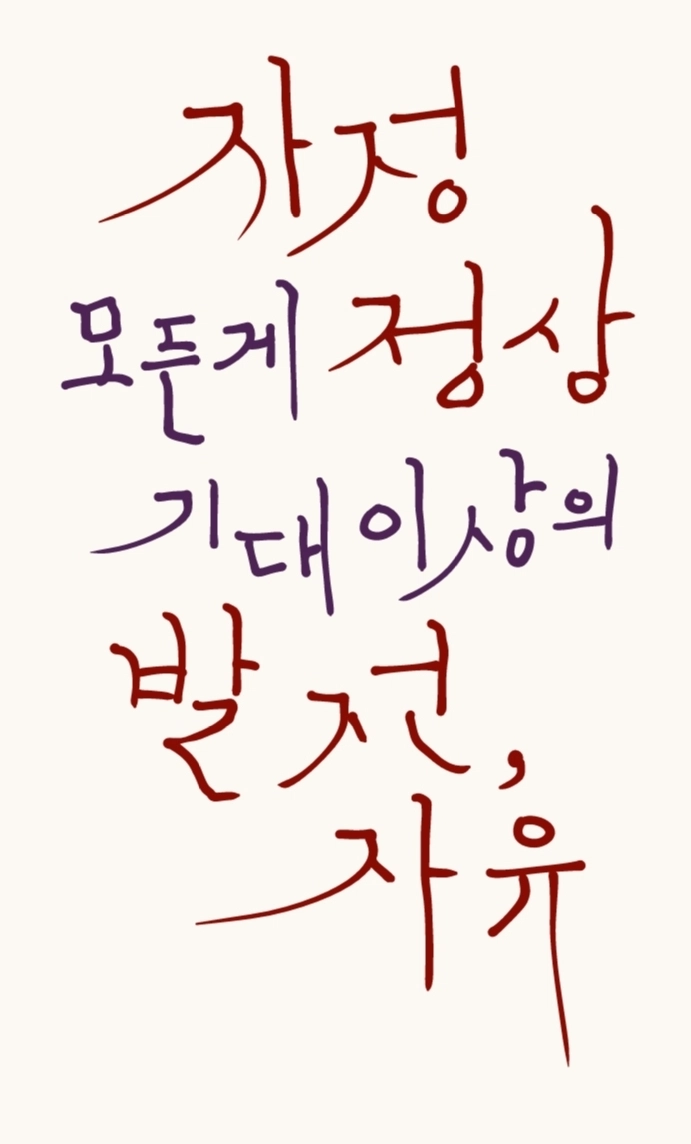 자정
모든게 정상
기대 이상의
발전,
자유